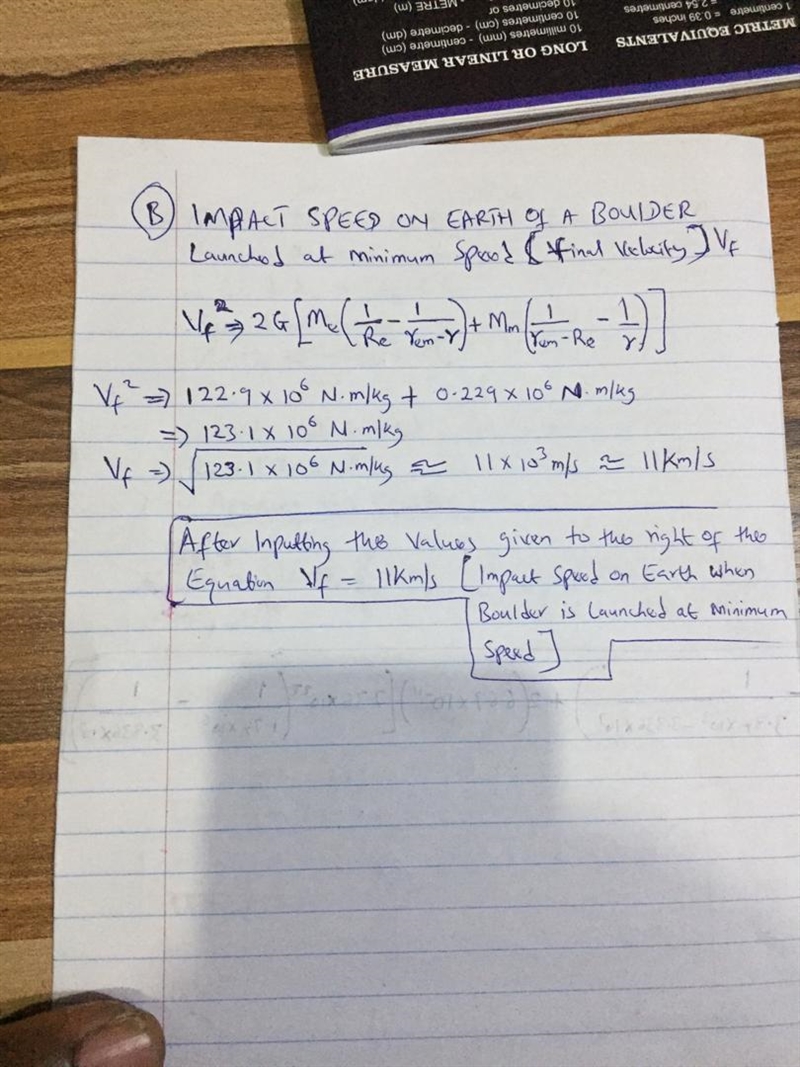 METRIC EQUIVALENTS
1 centimetre = 0.39 inches
= 2.54 centimetres
LONG OR LINEAR MEASURE
10 millimetres (mm) - centimetre (cm)
10 centimetres (cm) - decimetre (dm)
10 decimetres or
METRE (m)
(B) IMPACT SPEED ON EARTH Of A BOULDER
Launched at minimum Speed [Final Velocity] Vf
Vf² ⇒ 2G[Me(1/Re - 1/(rem-r)) + Mm(1/(rem-Re) - 1/r)]
Vf² ⇒ 122.9 x 10⁶ N.m/kg + 0.229 x 10⁶ N.m/kg
⇒ 123.1 x 10⁶ N.m/kg
Vf ⇒ √(123.1 x 10⁶ N.m/kg) ≅ 11 x 10³ m/s ≅ 11Km/s
After Inputting the Values given to the right of the
Equation Vf = 11Km/s [Impact Speed on Earth when
Boulder is Launched at minimum
Speed]